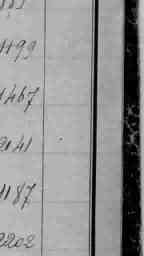 1199
1467
2141
1187
2202